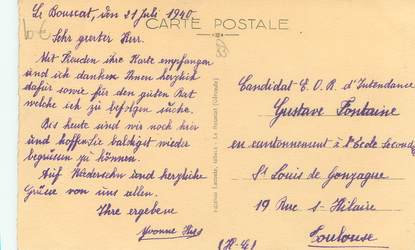 Le Bouscat, den 31 Juli 1940.
CARTE POSTALE
Sehr geerter Herr.
Mit Freuden ihre Karte empfangen
und ich danken Ihnen herzlich
dafür sowie für den guten Rat
welche ich zu befolgen suche.
Bis heute sind wir noch hier
und hoffen Sie baldigst wieder
begrüssen zu können.
Auf Wiedersehn und herzliche
Grüsse von uns allen.
Ihre ergebene
Yvonne
Candidat E. O. R. d'Intendance
Gustave Fontaine
en cantonnement à l'Ecole Second
St Louis de Gonzague
19 Rue St-Hilaire
Toulouse